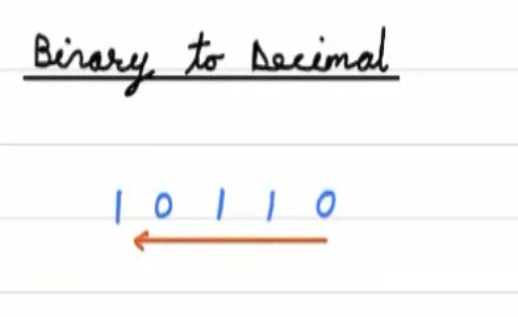 Binary to Decimal
1 0 1 1 0